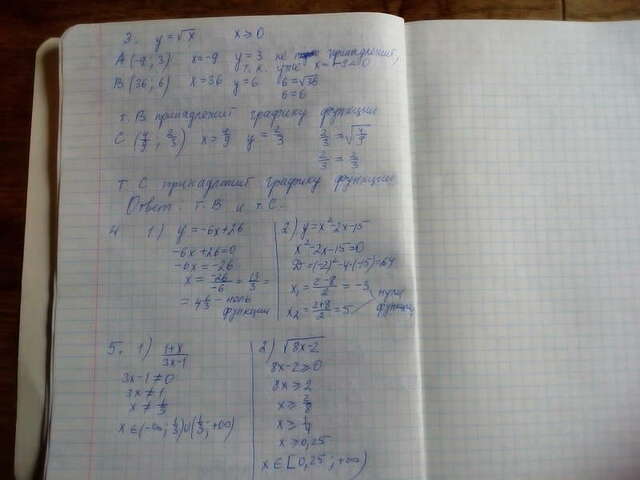 3. y=√x x≥0
A(-9; 3) x=-9 y=3 не принадлежит,
т.к. уже x=-9<0
B(36; 6) x=36 y=6 6=√36
6=6
т. B принадлежит графику функции
C (4/9; 2/3) x=4/9 y=2/3 2/3=√4/9
2/3=2/3
т. C принадлежит графику функции
Ответ. т. B и т. C.
4 1.) y=-6x+26
-6x+26=0
-6x=-26
x=-26/-6=13/3=
=4 1/3 - ноль
функции
2) y=x²-2x-15
x²-2x-15=0
D=(-2)²-4·(-15)=64
x₁=2-8/2=-3
x₂=2+8/2=5
нули
функции
5. 1) 1+x/3x-1
3x-1≠0
3x≠1
x≠1/3
x∈(-∞; 1/3)∪(1/3; +∞)
2) √8x-2
8x-2≥0
8x≥2
x≥2/8
x≥1/4
x≥0,25
x∈[0,25; +∞)